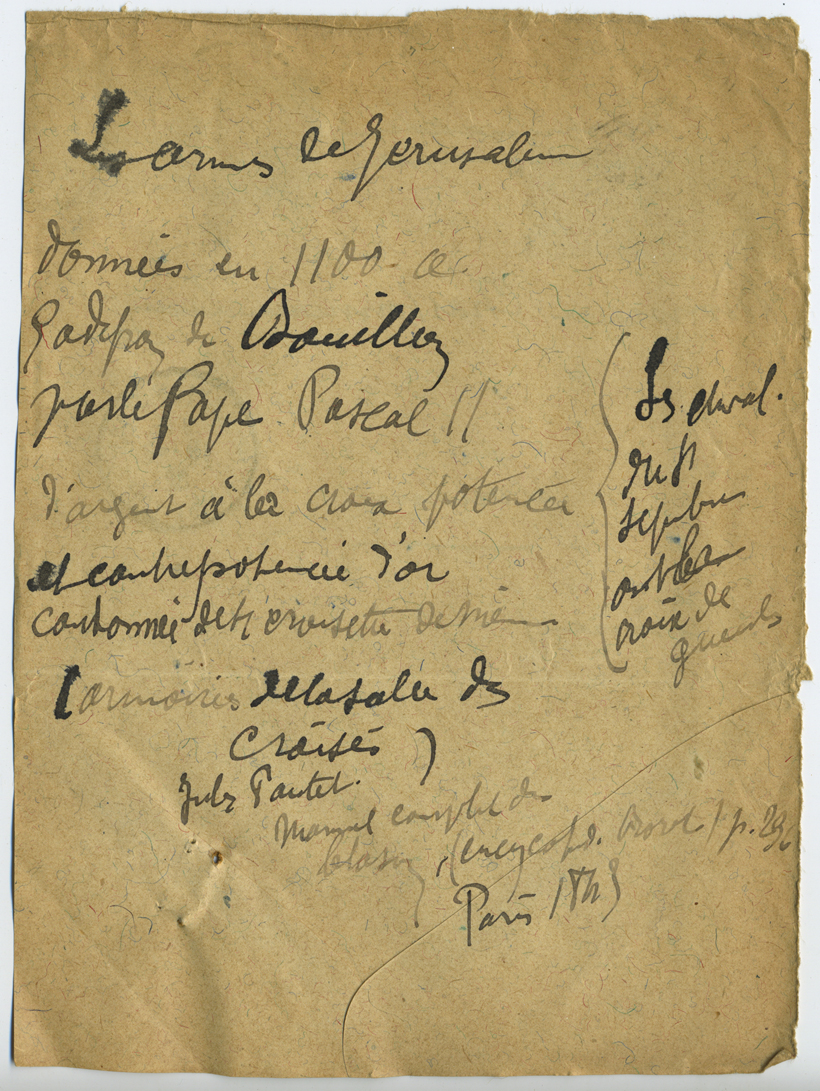 Les armes de Jerusalem
données en 1100 a
Godefroy de Bouillon
par le Pape Pascal II
d'argent à la croix potencée
et contrepotencée d'or
cantonnée de 4 croisettes de même
(armoiries de la salle des
Croisés)
Jules Pautet.
Manuel complet du
blason, (encyclopd. Roret) p. 296
Paris 1843
Les cheval.
du St
Sepulcre
ont la
croix de
gueules